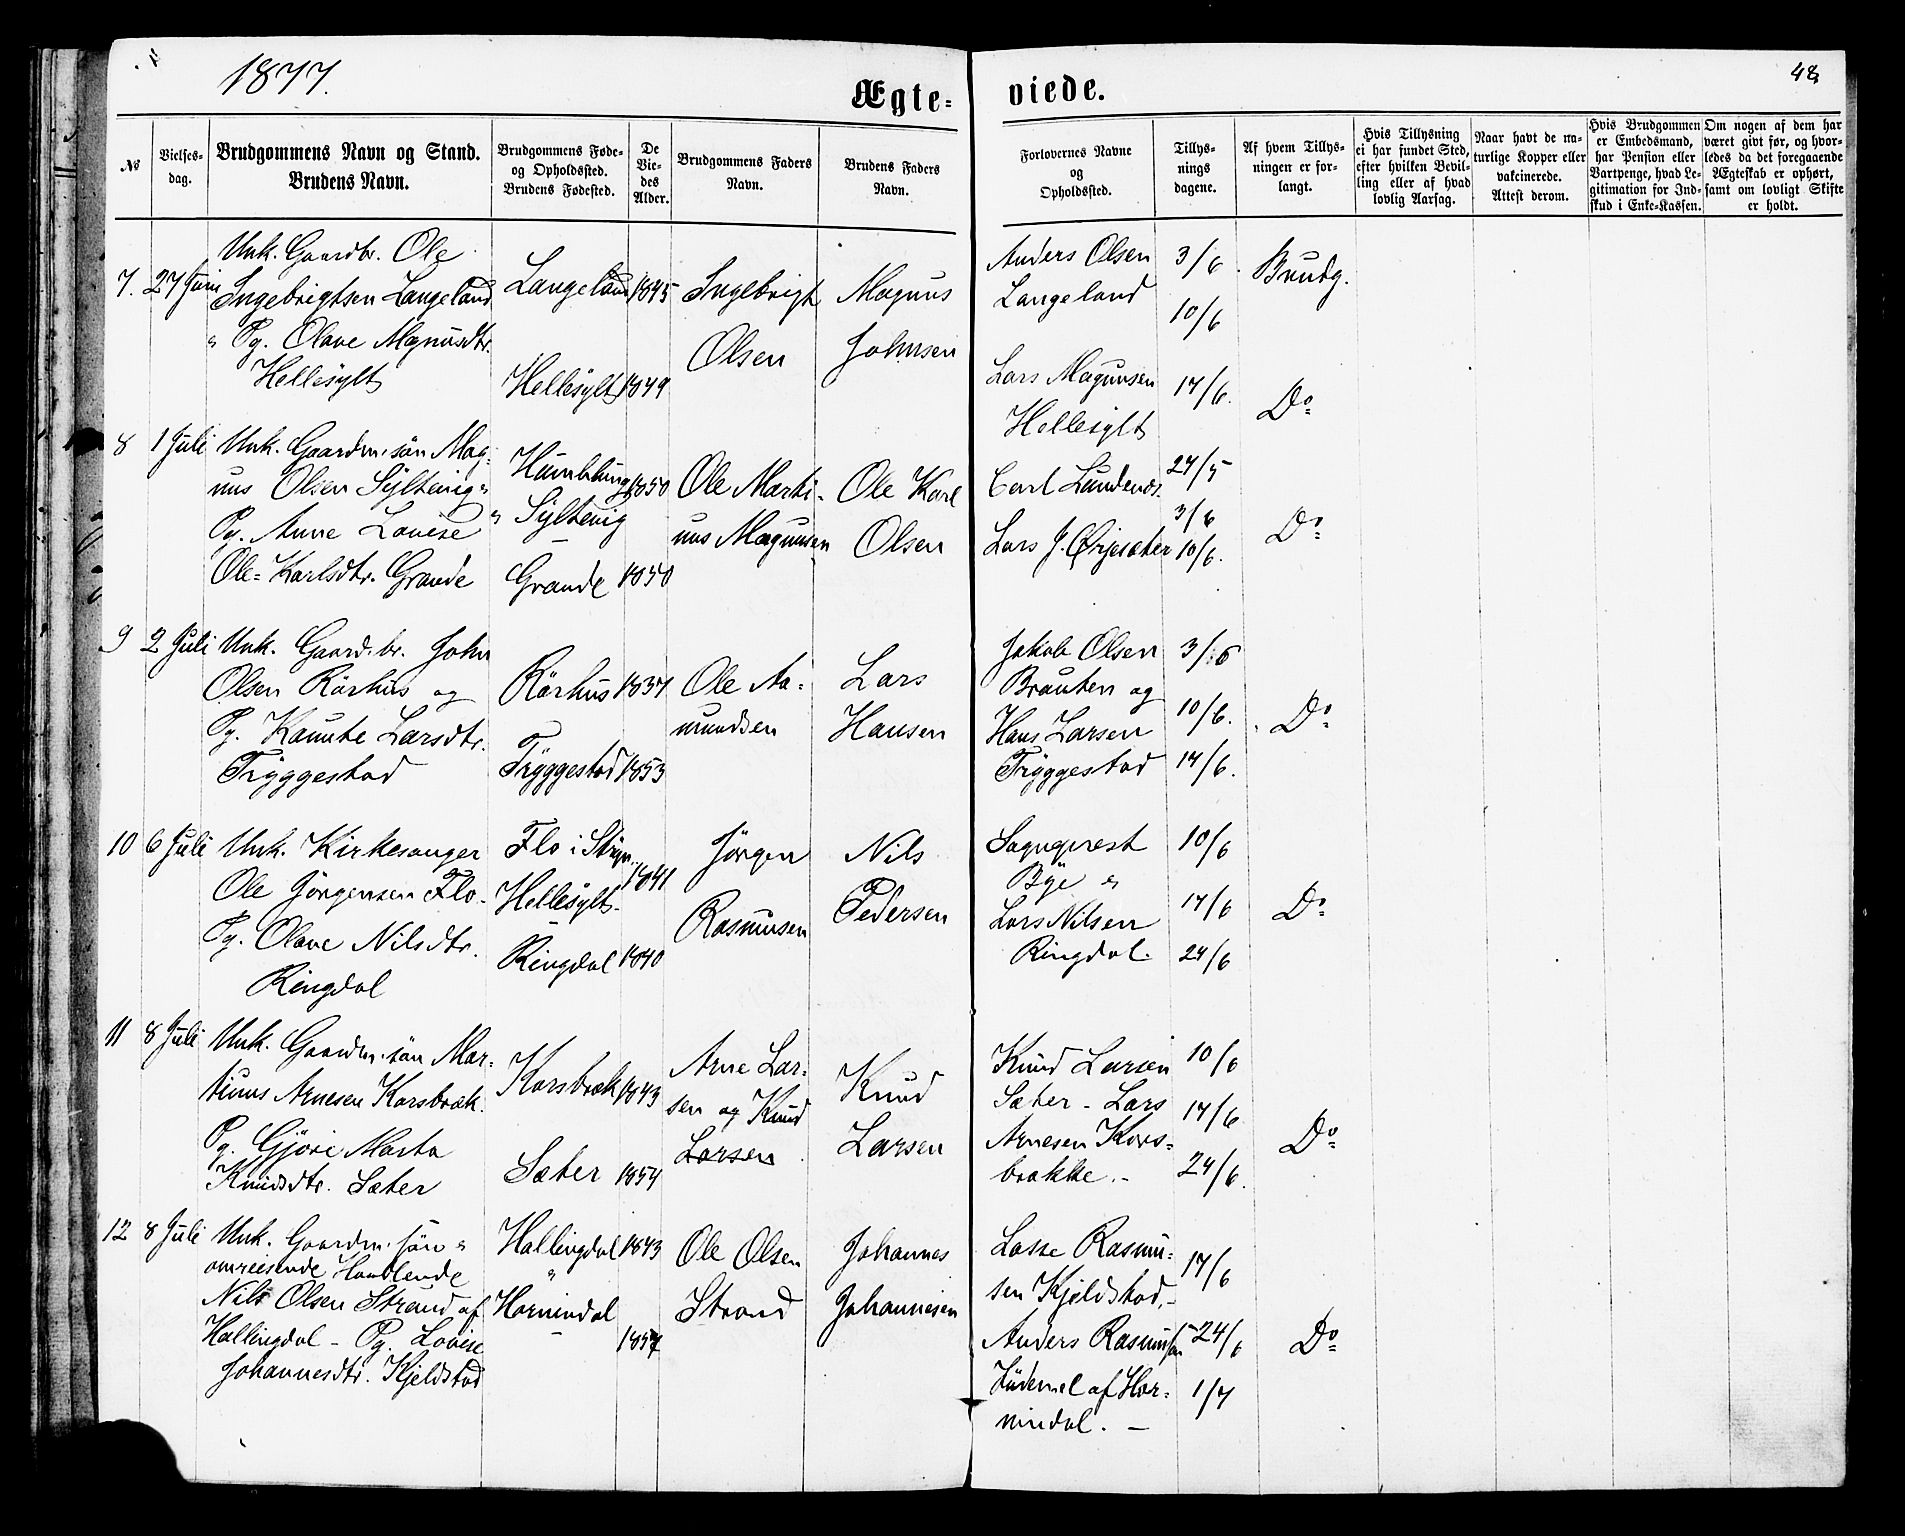 1877.
48
Ægte=viede.
No
Vielses-
dag.
Brudgommens Navn og Stand.
Brudens Navn.
Brudgommens Føde-
og Opholdssted.
Brudens Fødested.
De
Vie-
des
Alder.
Brudgommens Faders
Navn.
Brudens Faders
Navn.
Forlovernes Navne
og
Opholdssted.
Tillys-
nings
dagene.
Af hvem Tillys-
ningen er for-
langt.
Hvis Tillysning
ei har fundet Sted,
efter hvilken Bevil-
ling eller af hvad
lovlig Aarsag.
Naar havt de na-
turlige Kopper eller
vakcinerede.
Attest derom.
Hvis Brudgommen
er Embedsmand,
har Pension eller
Vartpenge, hvad Le-
gitimation for Ind-
skud i Enke-Kassen.
Om nogen af dem har
været givt før, og hvor-
ledes da det foregaaende
Ægteskab er ophørt,
samt om lovligt Skifte
er holdt.
7. 27 Juni
Unk. Gaardbr. Ole
Ingebrigtsen Langeland
" Pg. Olave Magnusdtr.
Hellesylt
Langeland 1845
Hellesylt 1849
Ingebrigt
Olsen
Magnus
Johnsen
Anders Olsen
Langeland
Lars Magnusen
Hellesylt
3/6.
10/6
17/6.
Brudg.
Do
8 1 Juli
Unk. Gaardm. søn Mag-
nus Olsen Syltevig "
Pg. Anne Lovise
Ole-Karlsdtr. Grande
Syltevig
Grande
1850
1850
Ole Marti-
nus Magnusen
Ole Karl
Olsen
Carl
Lars J.
27/5
3/6
10/6.
Do
9 2 Juli
Unk. Gaard.br. John
Olsen Rørhus og
Pg. Kannte Larsdtr.
Tryggestad
Rørhus 1837
Tryggestad 1853
Ole Aa-
mundsen
Lars
Hansen
Jakob Olsen
Brauten og
Hans Larsen
Tryggestad
3/6
10/6.
17/6.
Do
10 6 Juli
Unk. Kirkesanger
Ole Jørgensen Flo.
Pg. Olave Nilsdtr.
Ringdal
Flo i Stryn.
Hellesylt.
Ringdal
1841
1840
Jørgen
Rasmusen
Nils
Pedersen
Sogneprest
Bye "
Lars Nilsen
Ringdal.
10/6
17/6
24/6
Do
11 8 Juli
Unk. Gaardm. søn Mar-
tinus Arnesen Korsbræk.
Pg. Gjøre Marta
Knudsdtr. Sæter
Korsbræk 1843
Sæter 1854
Arne Lar-
sen og Knud
Larsen
Knud
Larsen
Knud Larsen
Sæter - Lars
Arnesen Kors-
brække. -
10/6
17/6
24/6.
Do
12 8 Juli
Unk. Gaardm. søn "
omreisende Handlende
Nils Olsen Strand af
Hallingdal - Pg. Lovise
Johannesdtr. Kjeldstad
Hallingdal 1843
"
Hornindal
1857
Ole Olsen
Strand
Johannes
Johannesen
Lasse Rasmu-
sen Kjeldstad. -
Anders Rasmusen
af Hor-
nindal. -
17/6
24/6
1/7
Do